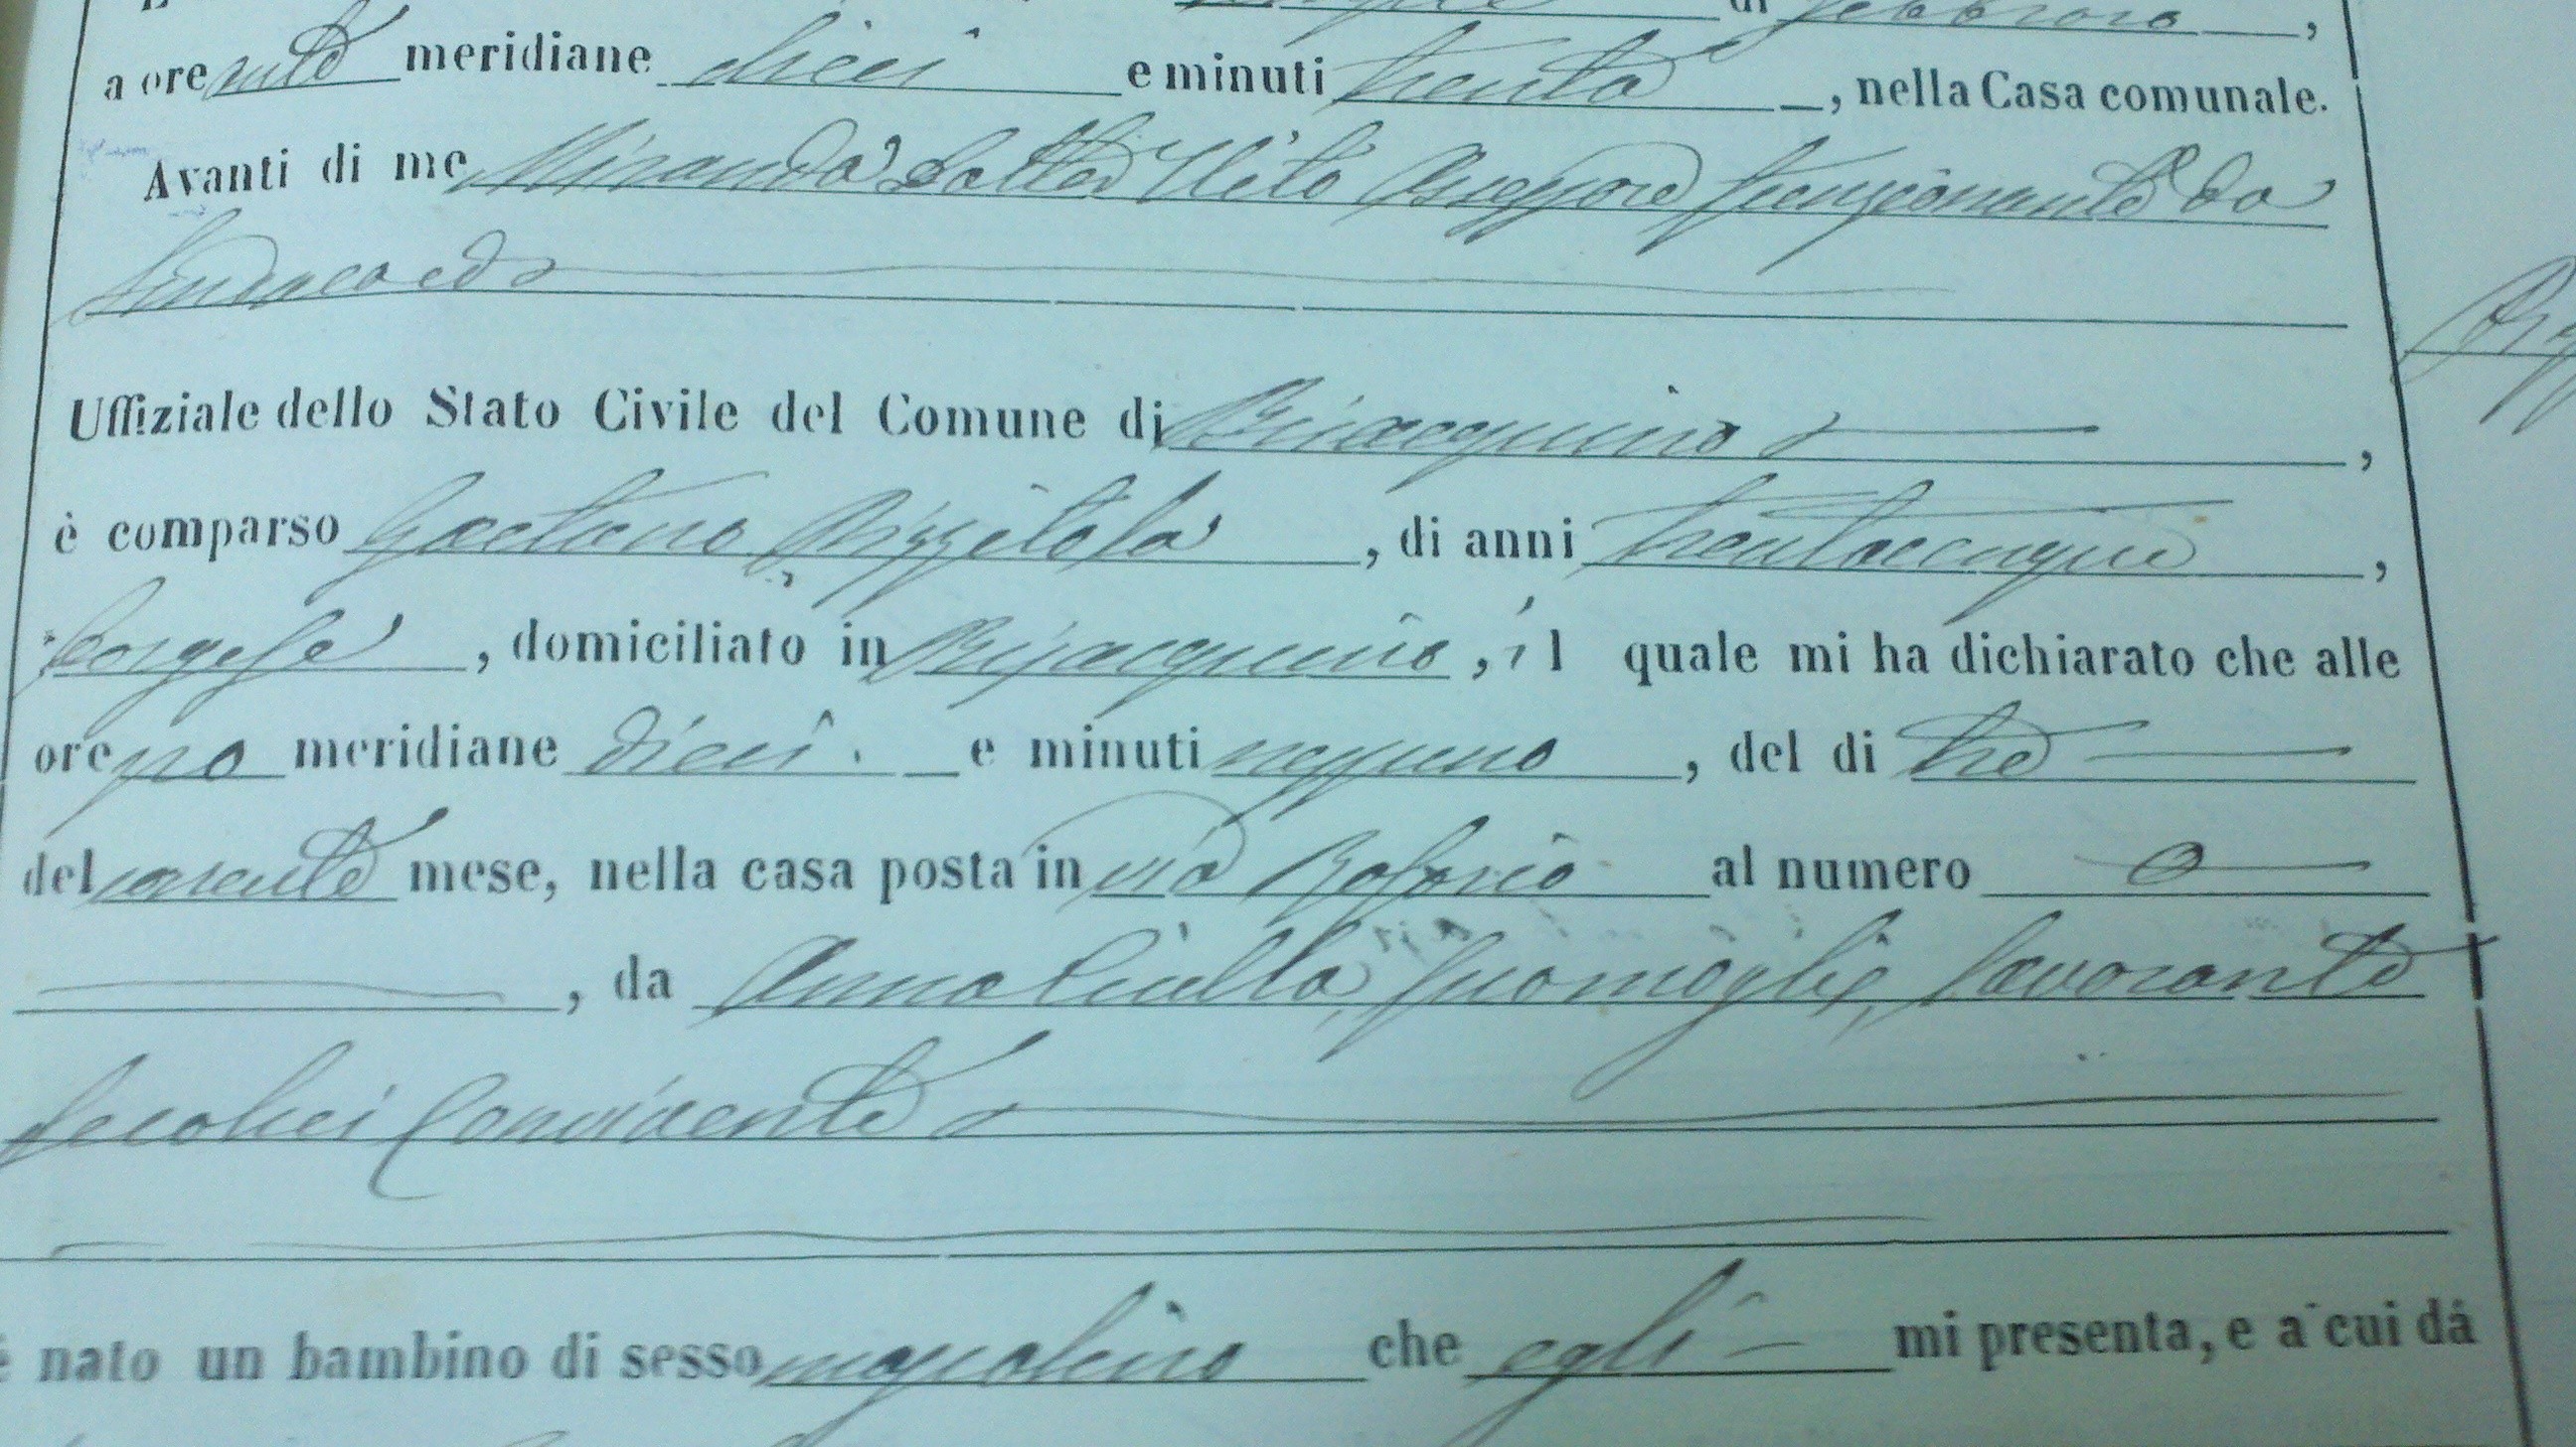 di febbraio,
a ore ante meridiane dieci e minuti trenta, nella Casa comunale.
Avanti di me Miranda Dotter Vito Assessore funzionante da
Sindaco ed
Uffiziale dello Stato Civile del Comune di Bisacquino,
è comparso Gaetano Pizzitola, di anni trentacinque,
borgese, domiciliato in Bisacquino, il quale mi ha dichiarato che alle
ore po meridiane dieci e minuti nessuno, del di tre
del corrente mese, nella casa posta in via Rosario al numero
, da Anna Ciulla, sua moglie, lavorante
secolui convivente
è nato un bambino di sesso mascolino che egli mi presenta, e a cui dà